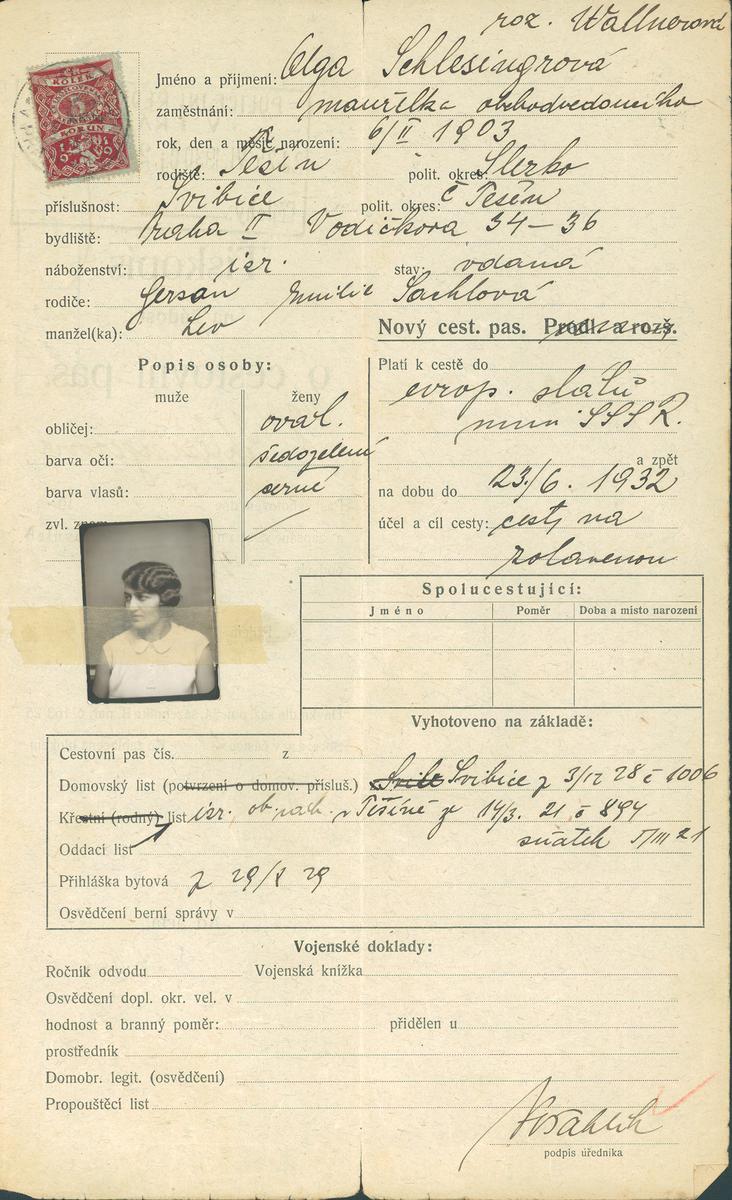 roz. Wallnerová
KOLEK
5
KORUN
Jméno a příjmení: Olga Schlesingrová
zaměstnání: manželka obchodvedoucího
rok, den a měsíc narození: 6/II 1903
rodiště: Těšín polit. okres:
příslušnost: Svibice polit. okres: č Těšín
bydliště: Praha II Vodičkova 34-36
náboženství: isr. stav: vdaná
rodiče: Gerson Emilie Sachlová
manžel(ka): Leo
Nový cest. pas. Prodl. a rozš.
Popis osoby:
muže ženy
obličej: oval.
barva očí: šedozelené
barva vlasů: černé
zvl. znam
Platí k cestě do
evrop. států
mimo SSSR.
a zpět
na dobu do 23./6. 1932
účel a cíl cesty: cesty na
zotavenou
Spolucestující:
Jméno Poměr Doba a místo narození
Vyhotoveno na základě:
Cestovní pas čís. z
Domovský list (potvrzení o domov. přísluš.) Svibice z 3/IV 28 č 1006
Křestní (rodný) list isr. ob. v Těšíně z 14/3. 21 č 894
Oddací list sňatek 5/III 21
Přihláška bytová z 29/X 29
Osvědčení berní správy v
Vojenské doklady:
Ročník odvodu Vojenská knížka
Osvědčení dopl. okr. vel. v
hodnost a branný poměr: přidělen u
prostředník
Domobr. legit. (osvědčení)
Propouštěcí list
podpis úředníka